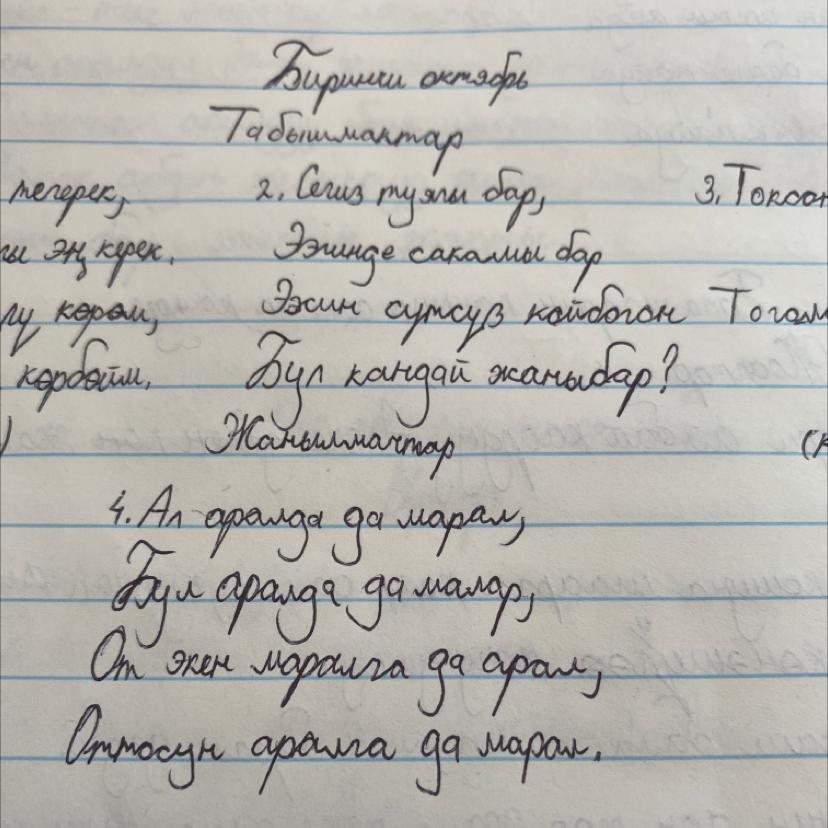 Биринчи октябрь
Табышмактар
тегерек, 2. Сегиз туягы бар, 3. Токсон
гы эң керек. Ээгинде сакалы бар
лү көрөм, Ээсин сүтсүз койбогон Тогол
көрбөйм. Бул кандай жаныбар?
) Жаңылмачтар (к
4. Ал аралда да марал,
Бул аралда да малар,
От экен маралга да арал,
Оттосун аралга да марал.